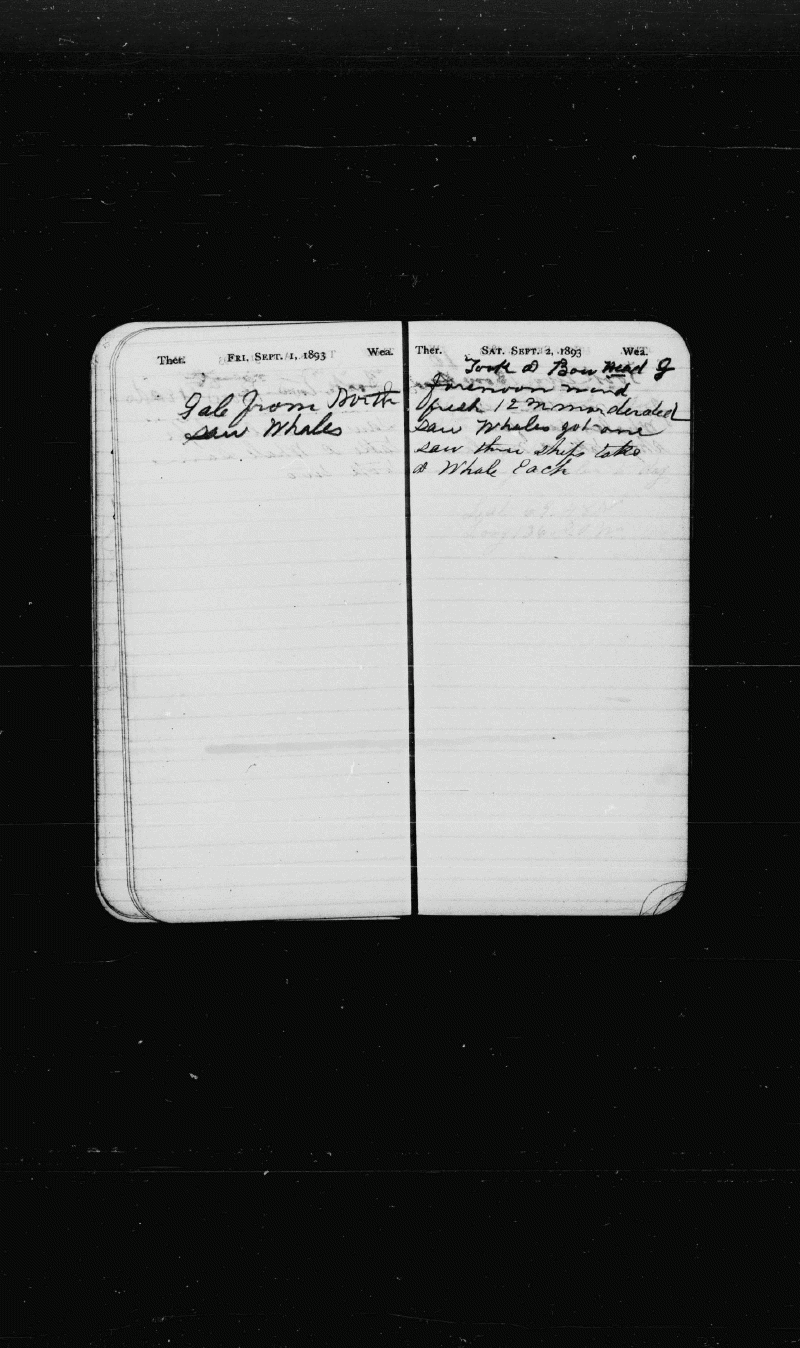 Ther. FRI. SEPT. 1, 1893 Wea.
Gale from North
saw Whales
Ther. SAT. SEPT. 2, 1893 Wea.
Took a Bow Head
forenoon wind
fresh 12 M morderated
saw Whales got one
saw three ships take
a Whale Each